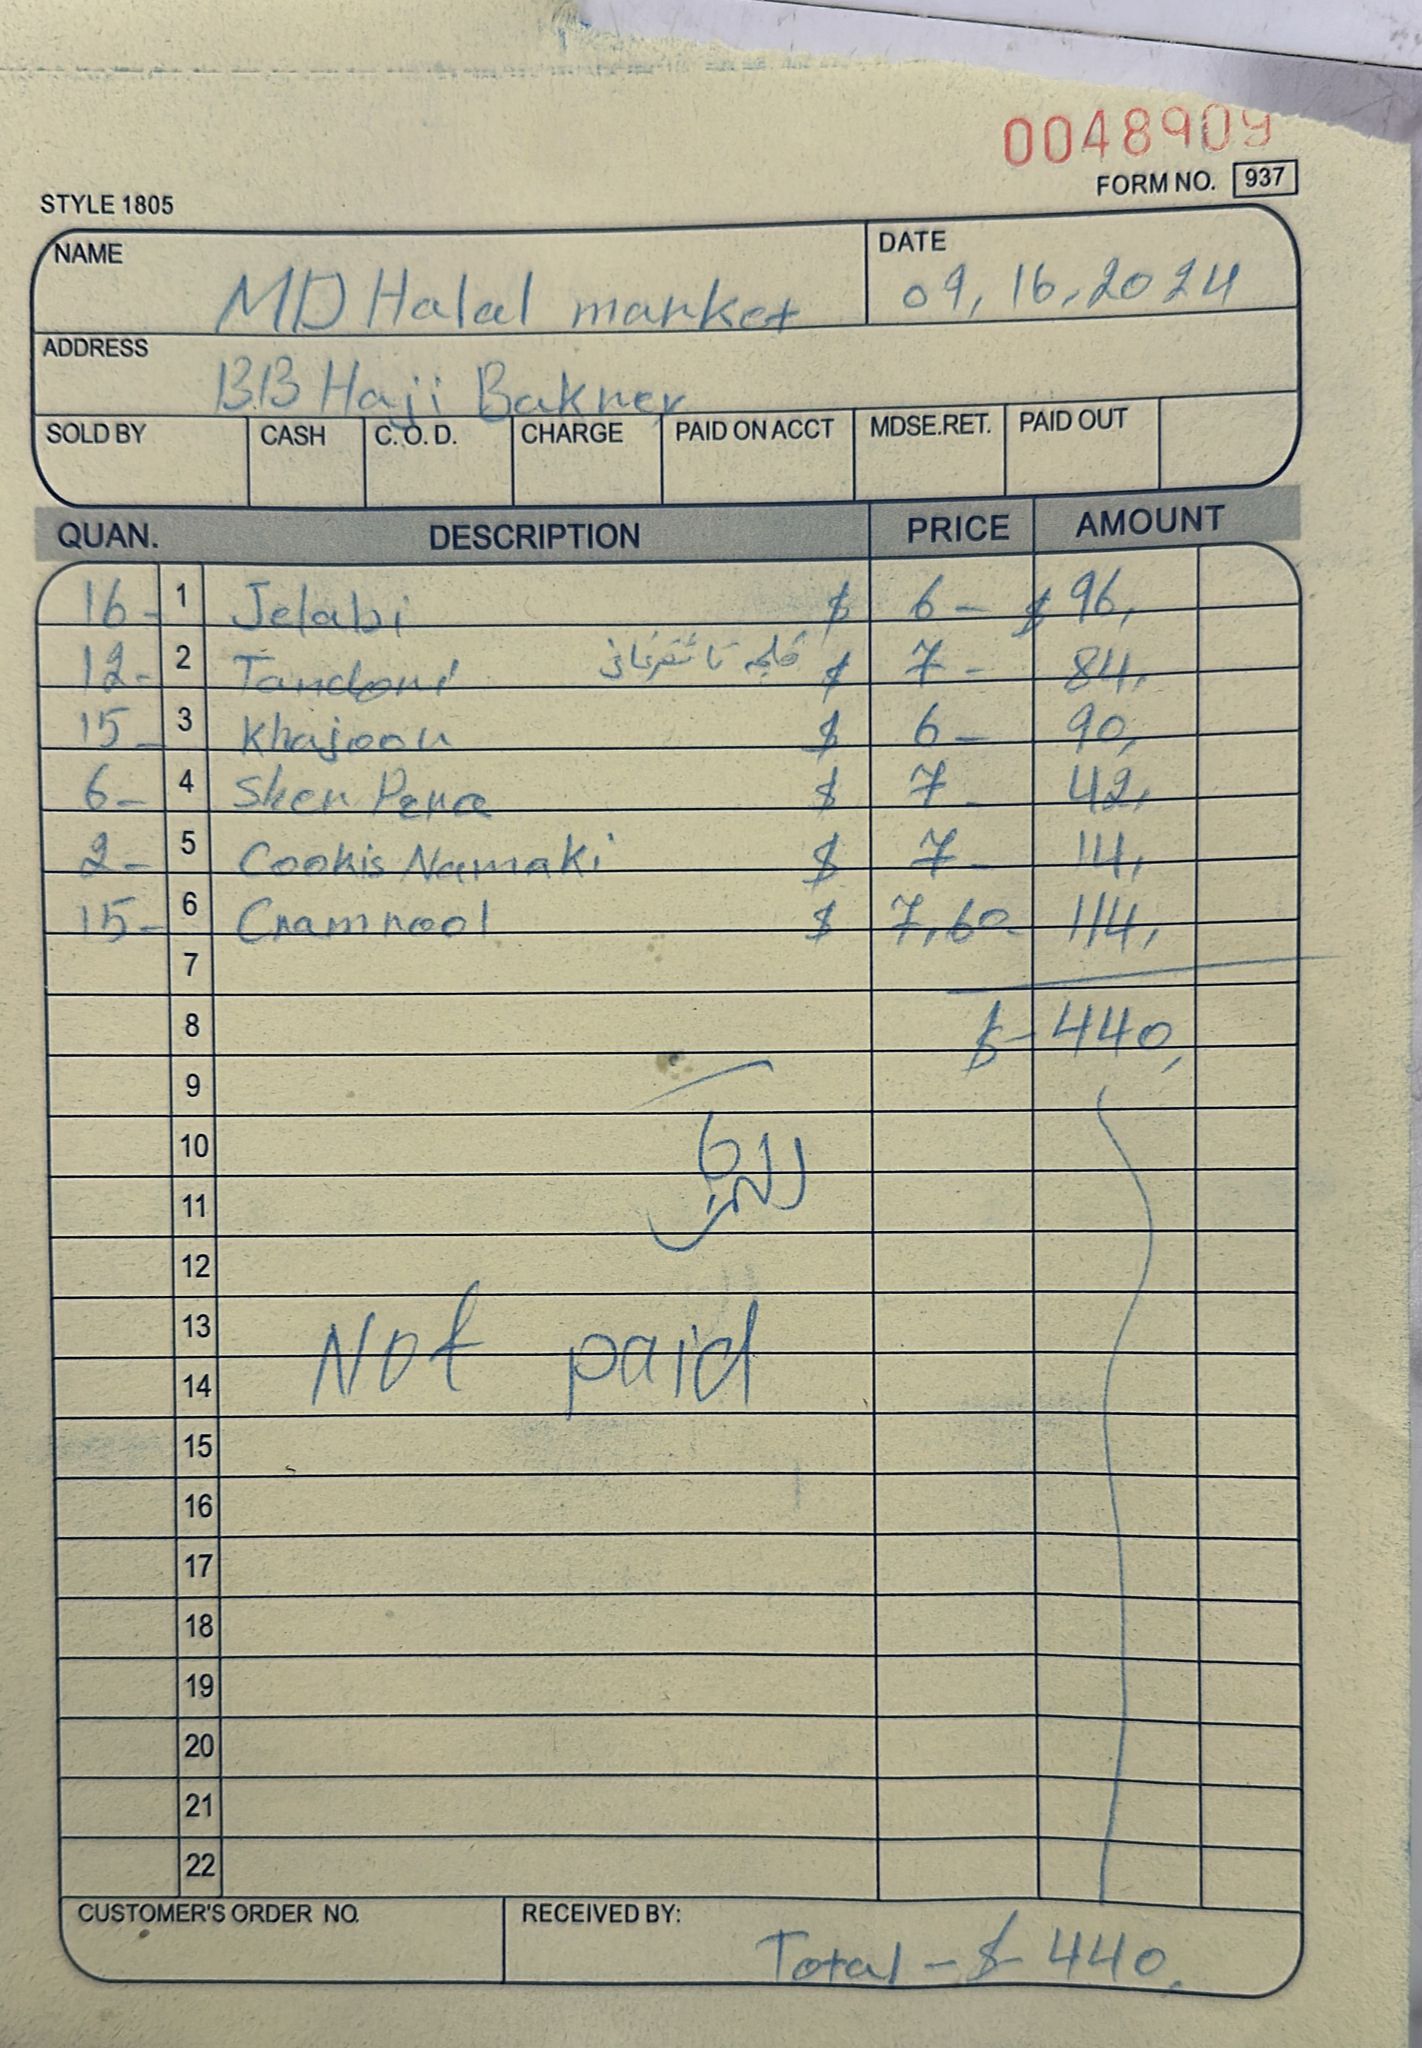 0048909
FORM NO. 937
STYLE 1805
NAME MD Halal market
DATE 09, 16, 2024
ADDRESS BB Haji Bakney
SOLD BY CASH C. O. D. CHARGE PAID ON ACCT MDSE.RET. PAID OUT
QUAN. DESCRIPTION PRICE AMOUNT
16- 1 Jelabi $ 6- $ 96,
12- 2 $ 7- 84,
15- 3 Khajoor $ 6- 90,
6- 4 Sher Pera $ 7- 42,
2- 5 Cookis Namaki $ 7- 14,
15- 6 Cramrool $ 7,60- 114,
7
8 $- 440,
9
10
11
12
13 Not paid
14
15
16
17
18
19
20
21
22
CUSTOMER'S ORDER NO. RECEIVED BY:
Total - $- 440,